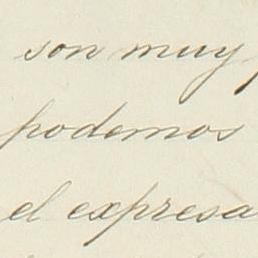 son muy
podemos
el expresa